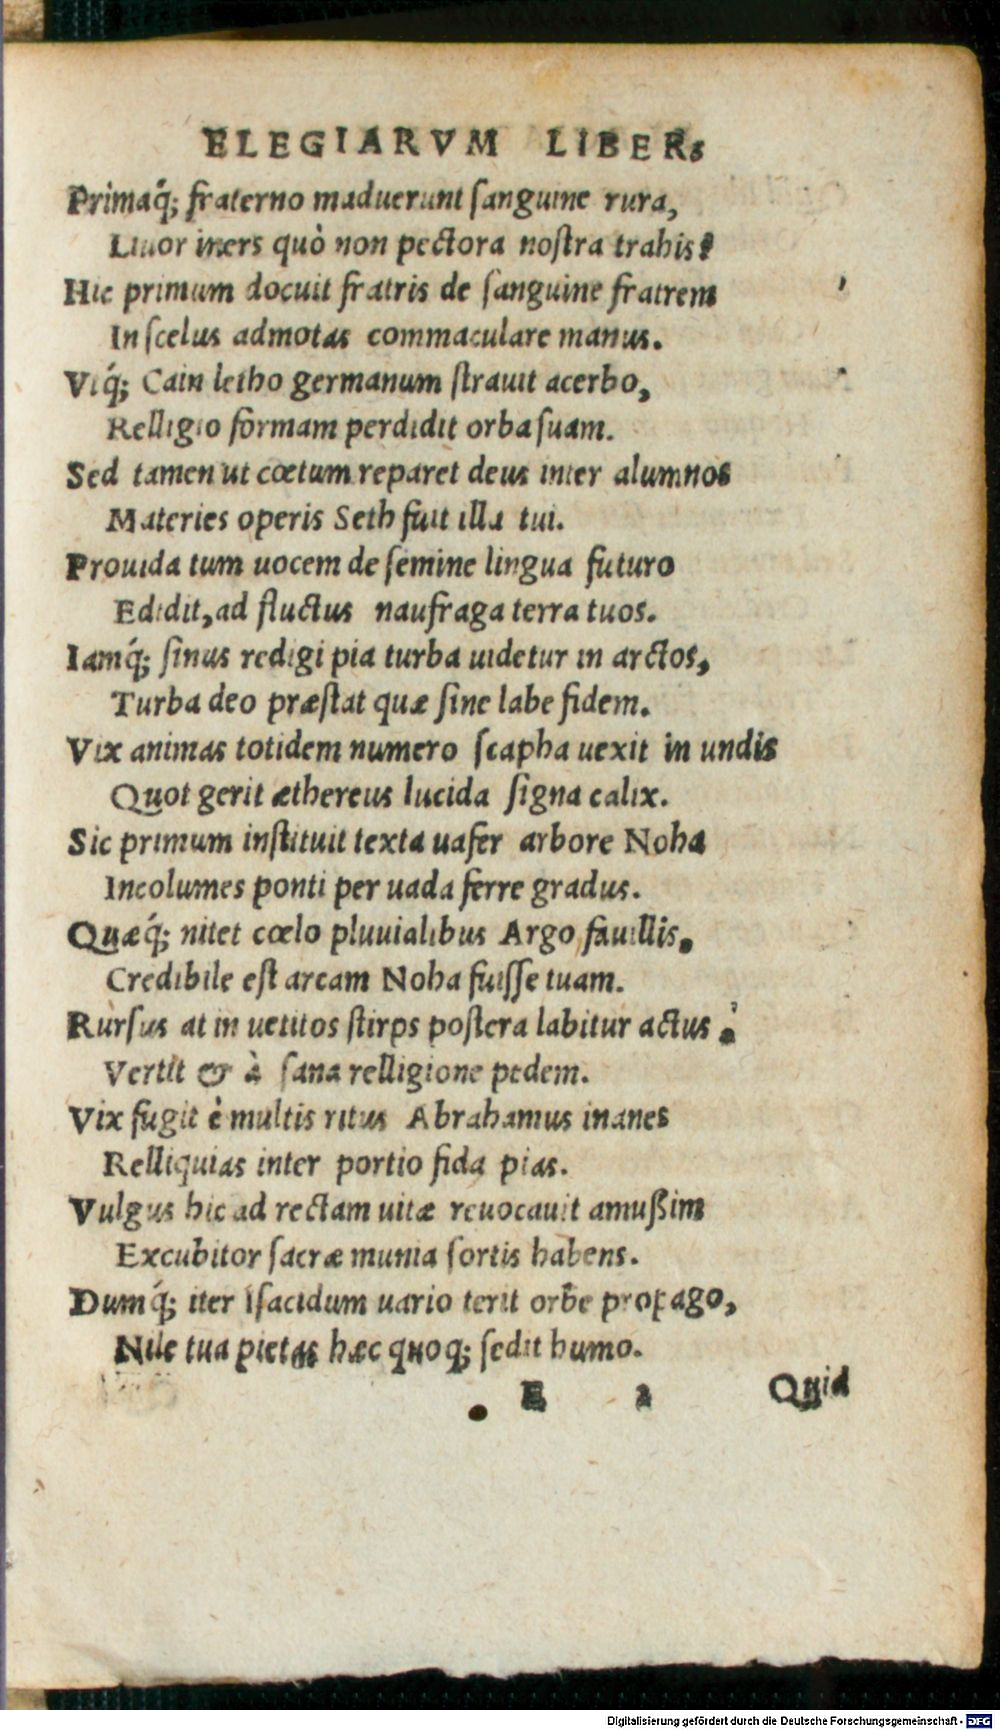 ELEGIARVM LIBER.
Primaq́; fraterno maduerunt ſanguine rura,
Liuor iners quò non pectora noſtra trahis?
Hic primum docuit fratris de ſanguine fratrem
In ſcelus admotas commaculare manus.
Vtq́; Cain letho germanum ſtrauit acerbo,
Relligio formam perdidit orba ſuam.
Sed tamen ut cœtum reparet deus inter alumnos
Materies operis Seth fuit illa tui.
Prouida tum uocem de ſemine lingua futuro
Edidit, ad fluctus naufraga terra tuos.
Iamq́; ſinus redigi pia turba uidetur in arctos,
Turba deo præſtat quæ ſine labe fidem.
Vix animas totidem numero ſcapha uexit in undis
Quot gerit æthereus lucida ſigna calix.
Sic primum inſtituit texta uafer arbore Noha
Incolumes ponti per uada ferre gradus.
Quæq́; nitet cœlo pluuialibus Argo fauillis,
Credibile eſt arcam Noha fuiſſe tuam.
Rurſus at in uetitos ſtirps poſtera labitur actus:
Vertit & à ſana relligione pedem.
Vix fugit è multis ritus Abrahamus inanes
Relliquias inter portio fida pias.
Vulgus hic ad rectam uitæ reuocauit amußim
Excubitor ſacræ munia ſortis habens.
Dumq́; iter Iſacidum uario terit orbe propago,
Nile tua pietas hæc quoq; ſedit humo.
E 2 Quid
Digitalisierung gefördert durch die Deutsche Forschungsgemeinschaft - DFG